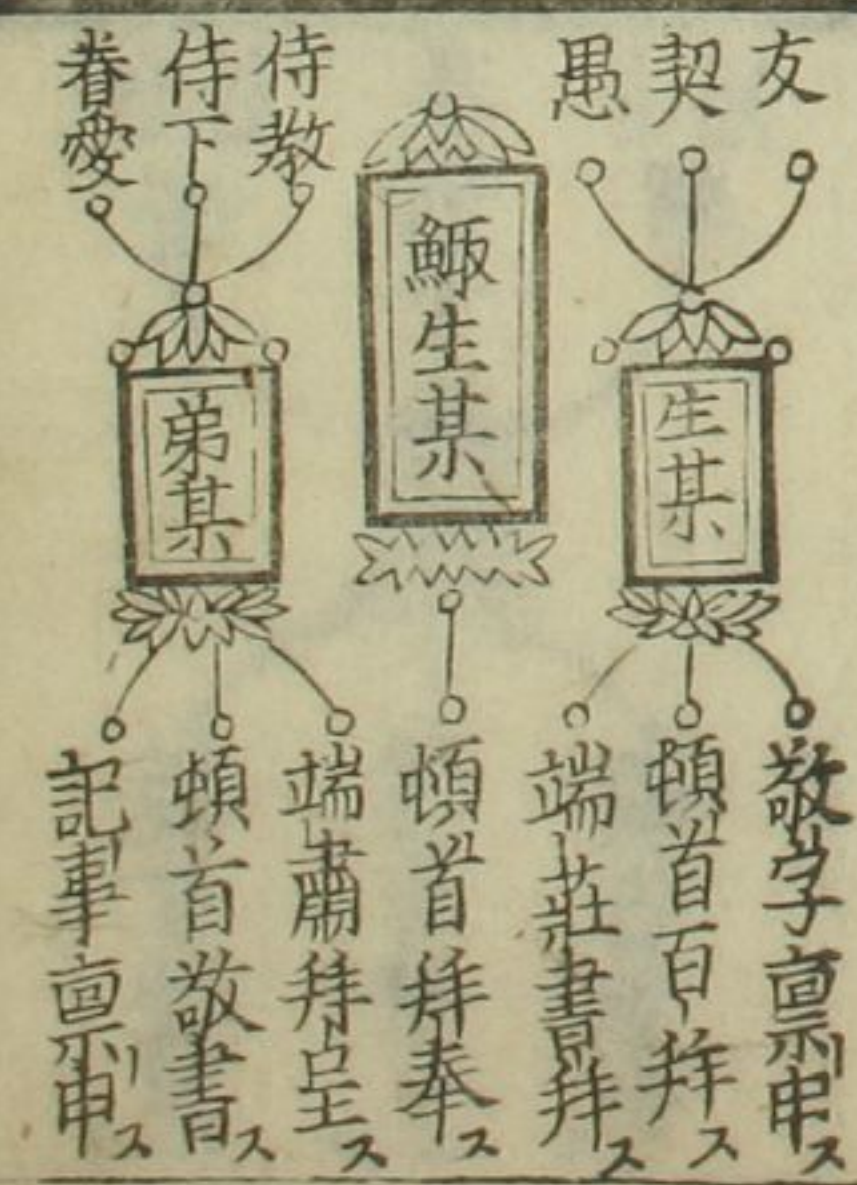 友
契
愚
生某
敬字稟申ス
頓首百拜ス
端莊書拜ス
鯫生某
頓首拜奉ス
侍教
侍下
眷愛
弟某
端肅拜呈ス
頓首敬書ス
記事稟申ス